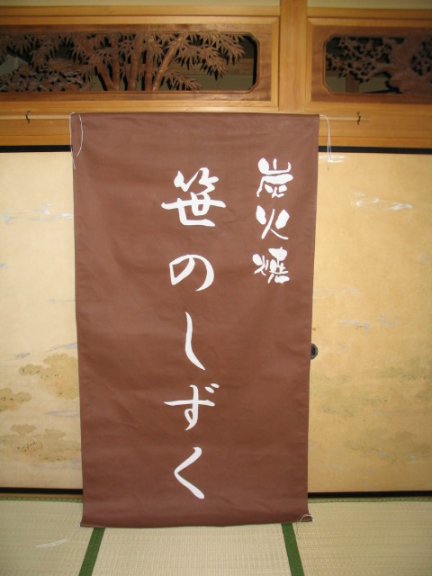 炭火焼
笹のしずく